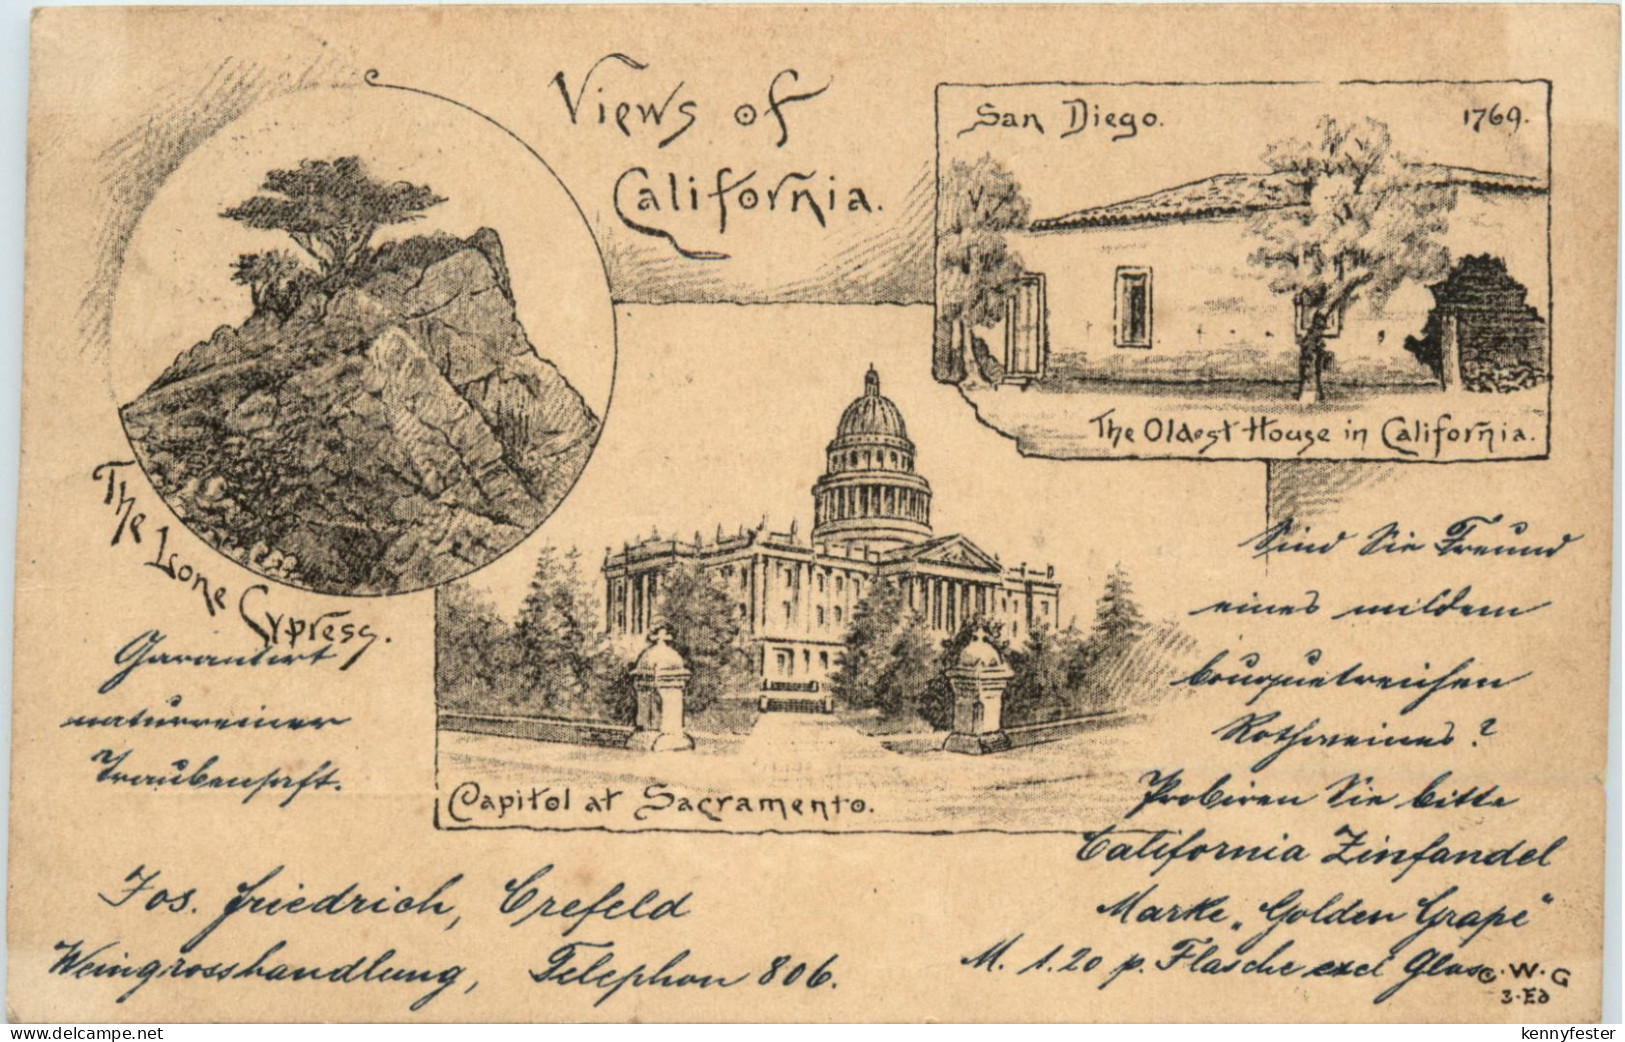 Views of
California.
San Diego. 1769.
The Oldest House in California.
The Lone Cypress.
Capitol at Sacramento.
Garantirt
naturreiner
Traubensaft.
Sind Sie Freund
eines mildem
bouquetreichen
Rothweines?
Probiren Sie bitte
California Zinfandel
Marke „Golden Grape“
M. 1.20 p. Flasche excl Glas
Jos. Friedrich, Crefeld
Weingrosshandlung, Telephon 806.
C.W.G
3.Ed
delcampe.net
kennyfester